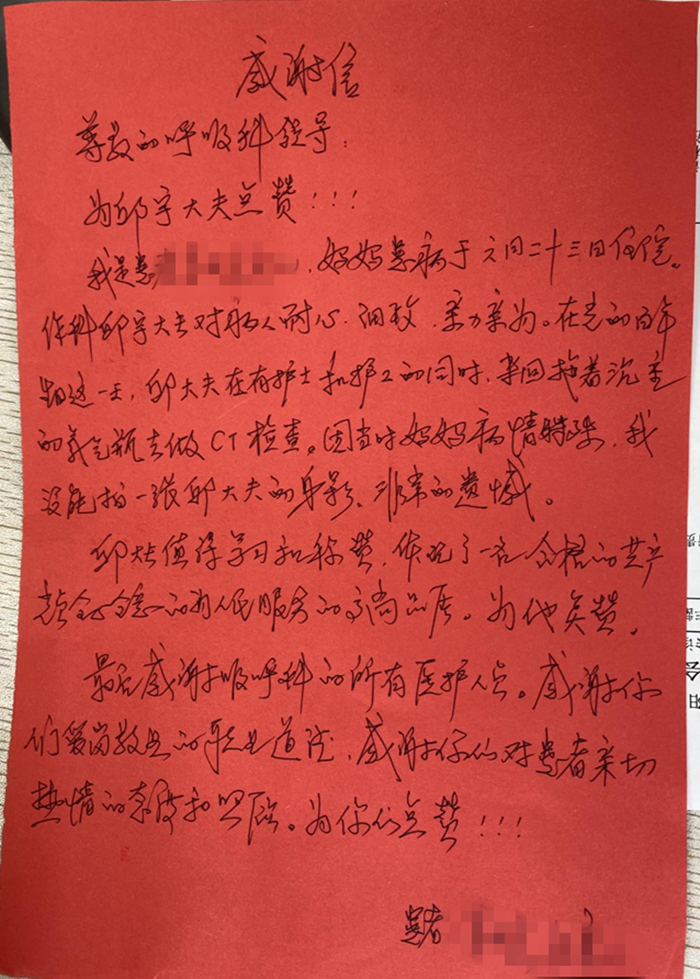 感谢信
尊敬的呼吸科领导:
为邱宇大夫点赞!!!
我是患 ,妈妈患病于六月二十三日住院。
你科邱宇大夫对病人耐心、细致、亲力亲为。在党的百年
这一天,邱大夫在有护士和护工的同时,来回拖着沉重
的氧气瓶去做CT检查。因当时妈妈病情特殊,我
没能拍一张邱大夫的身影、非常的遗憾。
邱大夫值得学习和称赞,体现了一名合格的共产
党全心全意的为人民服务的高尚品质。为他点赞。
最后感谢吸呼科的所有医护人员。感谢你
们爱岗敬业的职业道德,感谢你们对患者亲切
热情的态度和照顾。为你们点赞!!!
患者